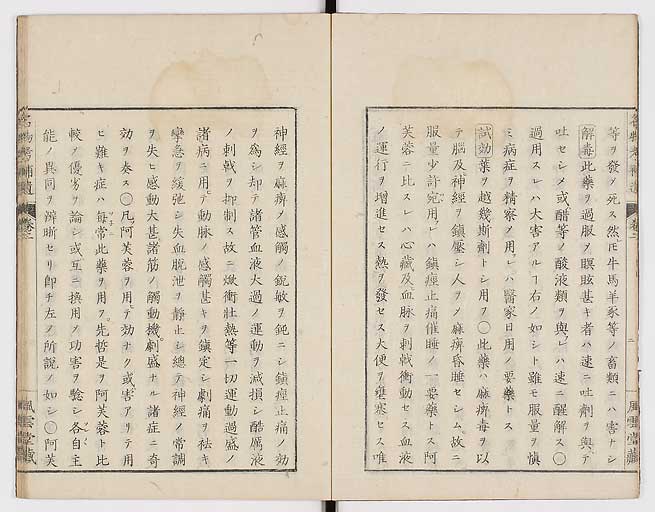 等ヲ發メ死ス然𪜈牛馬羊豕等ノ畜類ニハ害ナシ
解毒此藥ヲ過服メ瞑眩甚キ者ハ速ニ吐劑ヲ與ヘテ
吐セシメ或ハ醋等ノ酸液類ヲ與レハ速ニ醒解ス〇
過用スレハ大害アルヿ右ノ如シト雖モ服量ヲ愼
ミ病症ヲ精察メ用レハ醫家日用ノ要藥トス
試効葉ヲ越幾斯劑トシ用フ〇此藥ハ麻痺毒ヲ以
テ腦及ヒ神經ヲ鎭壓シ人ヲメ麻痺昏睡セシム故ニ
服量少許宛用レハ鎭痙止痛催睡ノ一要藥トス阿
芙蓉ニ比スレハ心臟及ヒ血脉ヲ刺戟衝動セス血液
ノ運行ヲ增進セス熱ヲ發セス大便ヲ壅塞セス唯
神經ヲ麻痺メ感觸ノ銳敏ヲ鈍ニシ鎭痙止痛ノ効
ヲ爲シ却テ諸管血液大過ノ運動ヲ減損シ酷厲液
ノ刺戟ヲ抑制ス故ニ焮衝壯熱等一切運動過盛ノ
諸病ニ用テ動脉ノ感觸甚キヲ鎭定シ劇痛ヲ祛キ
攣急ヲ緩弛シ失血脫泄ヲ靜止シ總テ神經ノ常調
ヲ失ヒ感動大甚諸筋ノ觸動機劇盛ナル諸症ニ奇
効ヲ奏ス〇凡ソ阿芙蓉ヲ用テ効ナク或害アリテ用
ヒ難キ症ハ每常此藥ヲ用フ先哲是ヲ阿芙蓉ト比
較メ優劣ヲ論シ或互ニ換用メ功害ヲ驗シ各自主
能ノ異同ヲ辨晰セリ卽チ左ノ所說ノ如シ〇阿芙
名物考補遺 卷二
風雲堂藏